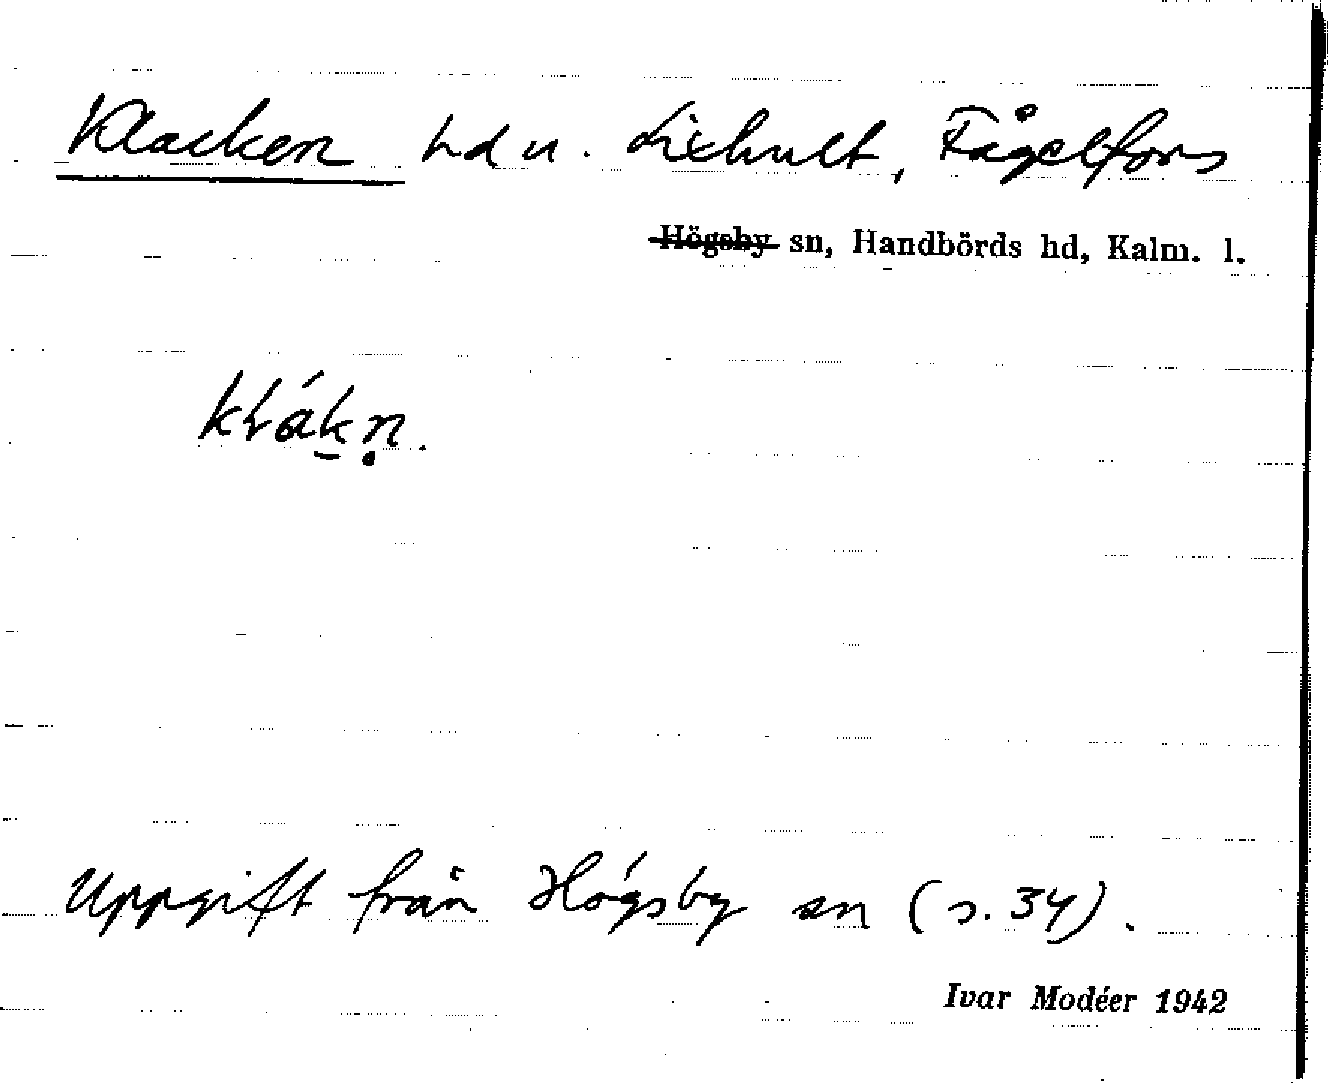 Klacken hd u. Lixhult, Fågelfors
Högsby sn, Handbörds hd, Kalm. l.
klák̠ṇ.
Uppgift från Högsby sn (s. 34).
Ivar Modéer 1942